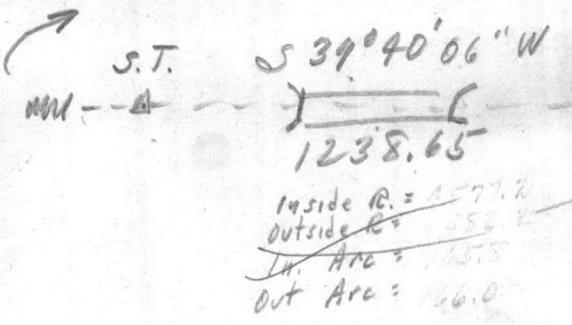 S.T.
S 39°40'06" W
1238.65
Inside R. =
Outside R =
In. Arc =
Out Arc =